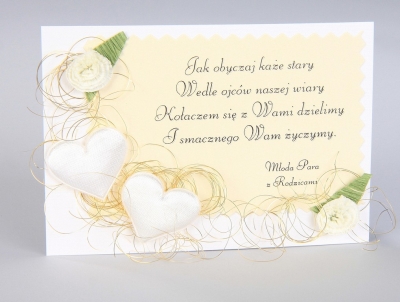 Jak obyczaj każe stary
Wedle ojców naszej wiary
Kołaczem się z Wami dzielimy
I smacznego Wam życzymy.
Młoda Para
z Rodzicami